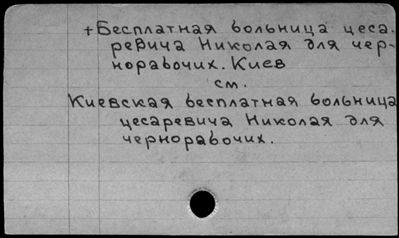 +Бесплатная больница цеса-
ревича Николая для чер-
норабочих. Киев
см.
Киевская бесплатная больница
цесаревича Николая для
чернорабочих.